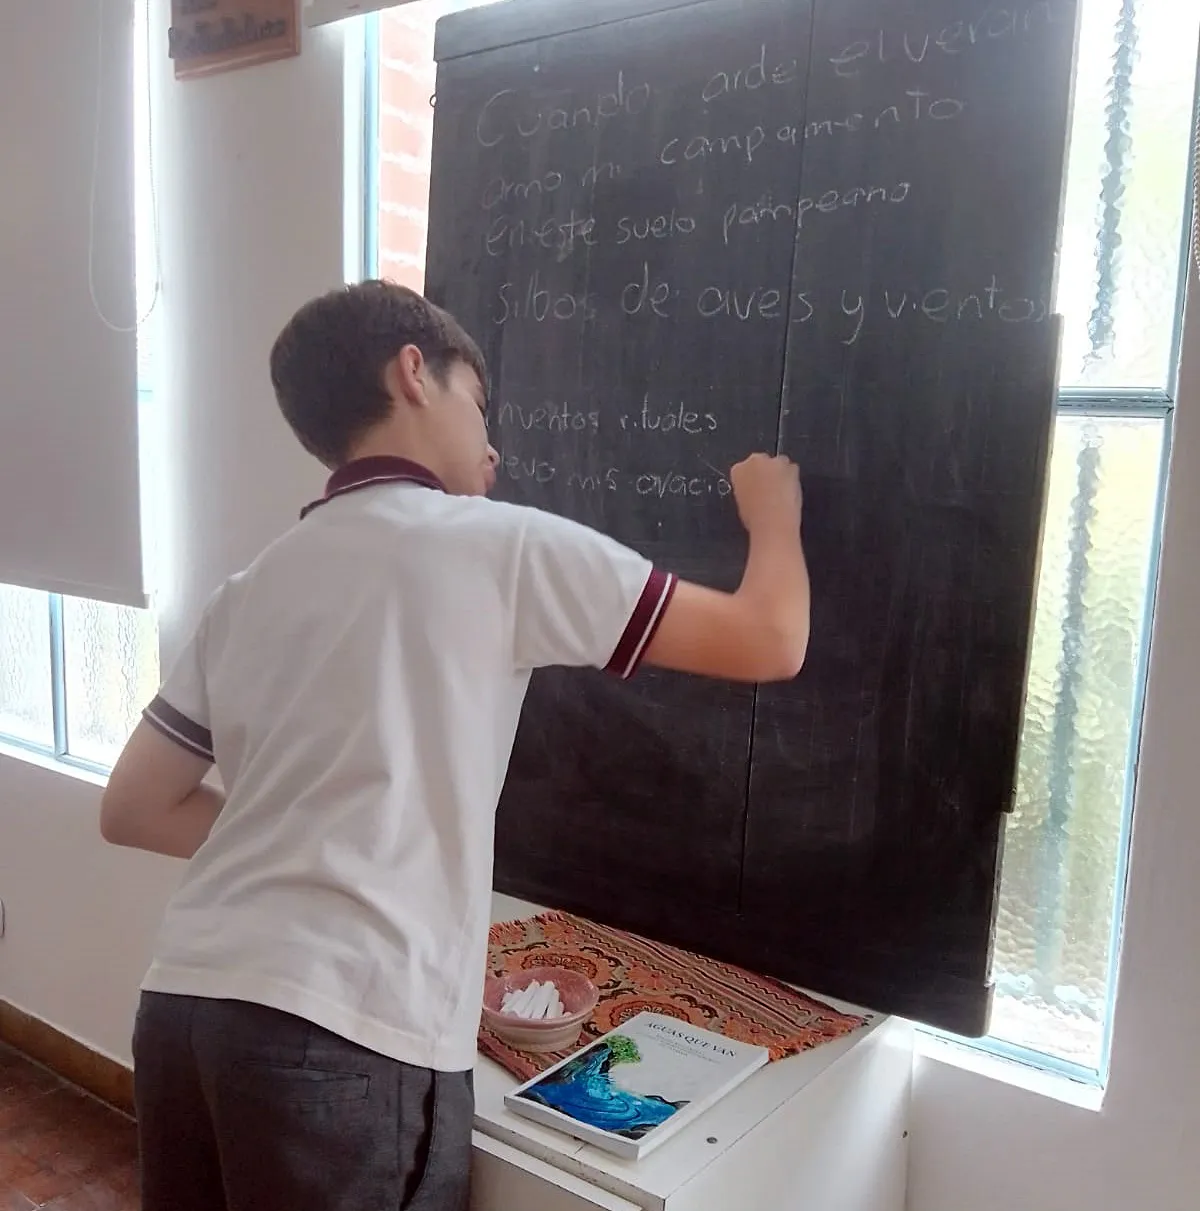 Cuando arde el veran
armo mi campamento
en este suelo pampeano
silbos de aves y vientos
nventos rituales
levo mis oracio
AGUAS QUE VAN